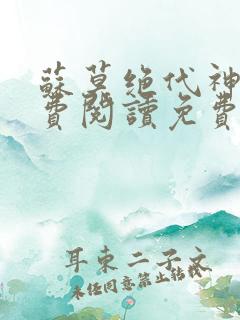 蘇莫绝代神
費閱讀免費
耳東二子文
未经同意禁止转载